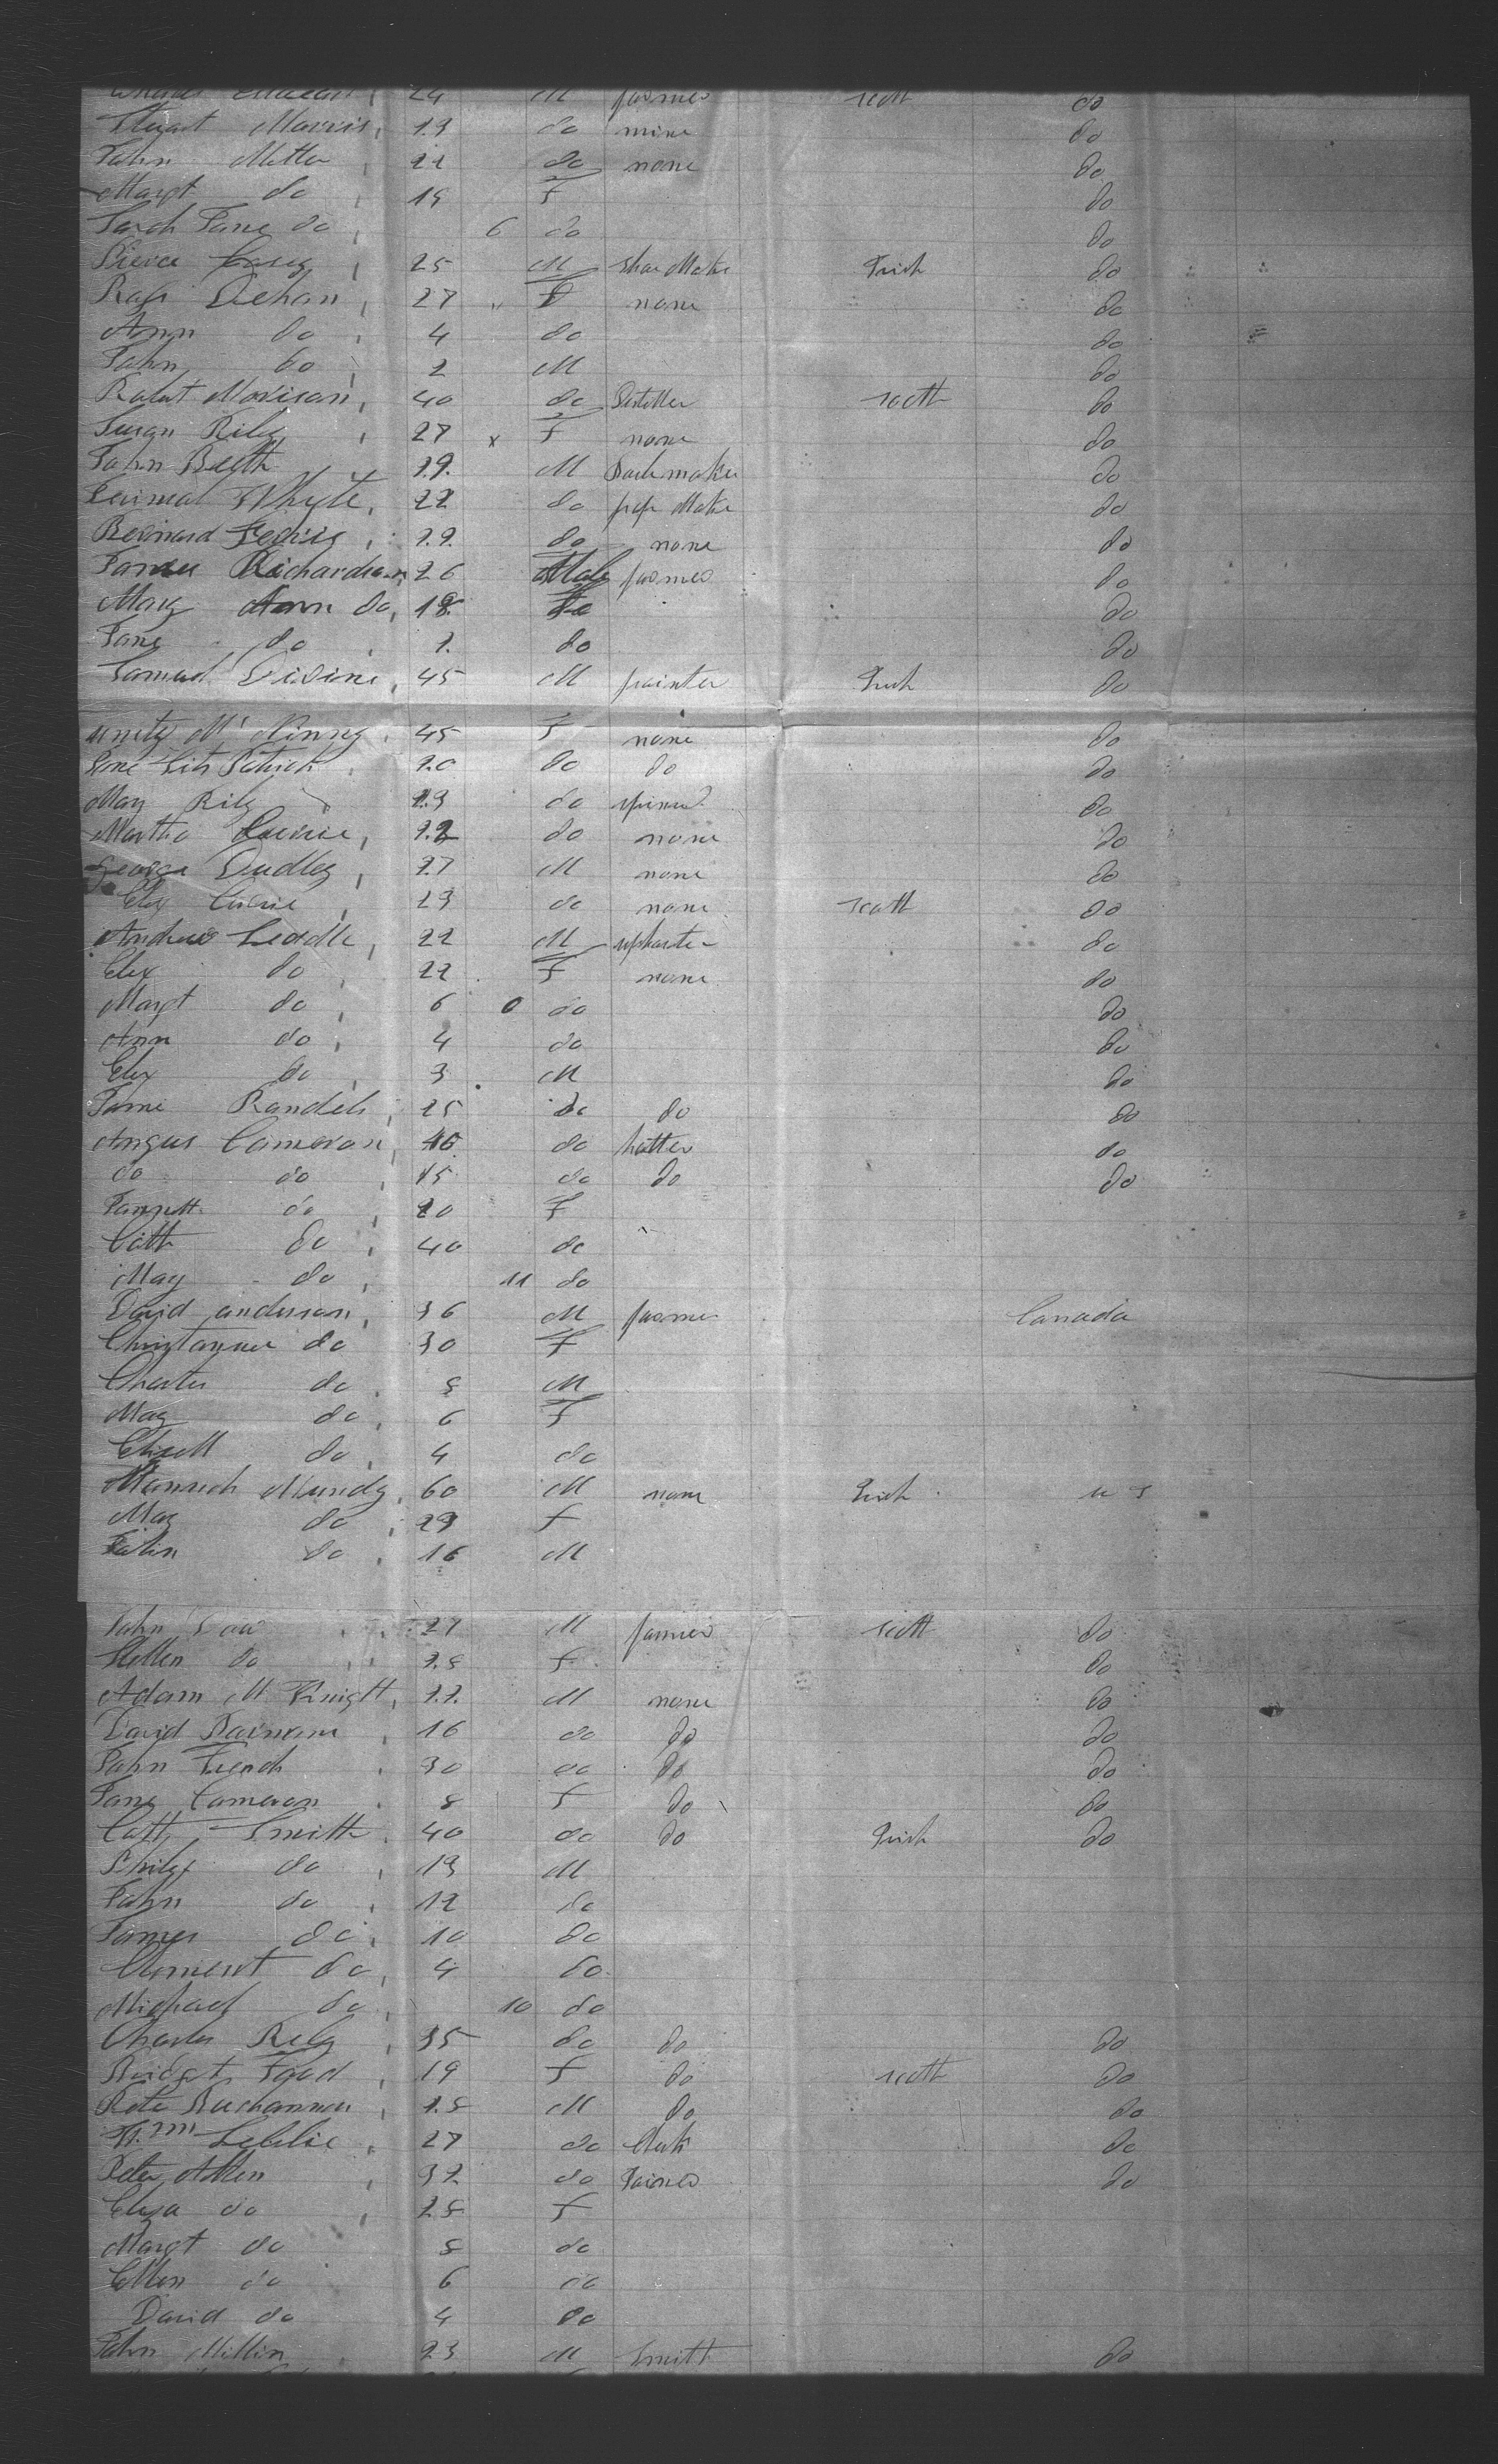 24 M farmer scott do
Stuart Morris, 19 do mine do
John Mitte 22 do none do
Margt do, 19 f do
Sarah Jane do, 6 do do
Pierce Casey, 25 M Shoe Make Irish do
Rose Dehan, 27 " f none do
Ann do, 4 do do
John do 2 M do
Robert Morison, 40 do Distiller scott do
Susan Riley, 27 x f none do
John Beith 19 M Sadlemaker do
Whyte, 22 do pipe Make do
Bernard 22 do none do
James Richardson, 26 Male farmer do
Mary Ann do, 18 do
Jane do 1 do do
Samuel Divine, 45 M painter Irish do
unity Mc Kinney, 45 f none do
Jane Fits Patrick, 20 do do do
May Riley 23 do spiner do
Martha Currie, 22 do none do
George Dudley, 27 M none do
Eliz Currie, 23 do none scott do
Andrew Leddle, 22 M do
Eliz do, 22 f none do
Margt do, 6 0 do do
Ann do, 4 do do
Eliz do, 3 M do
Jame Randels, 25 do do do
Angus Cameron, 46 do hatter do
do do, 15 do do do
Jannett do, 20 f
Cath do, 40 do
May do, 11 do
David anderson, 36 M farmer Canada
do 30 f
Charles do, 8 M
May do, 6 f
do, 4 do
Mundy, 60 M none Irish u s
May do, 29 f
do, 16 M
John 27 M farmer scott do
Hellen do 28 f do
Adam Mc Knight, 22 M none do
David 16 do do do
John French, 30 do do do
Jane Cameron, 8 f do do
Cath Smith, 40 do do Irish do
Philip do, 13 M
John do, 12 do
James do, 10 do
Clement do, 4 do
Michael do, 10 do
Charles Riley, 35 do do do
Bridget Food, 19 f do scott do
Peter Buchannan, 28 M do do
Wm Leslie, 27 do Clerk do
Peter Allen, 32 do Joiner do
Eliza do, 28 f
Margt do 8 do
Ellen do 6 do
David do 4 do
John Millin 23 M Smith do